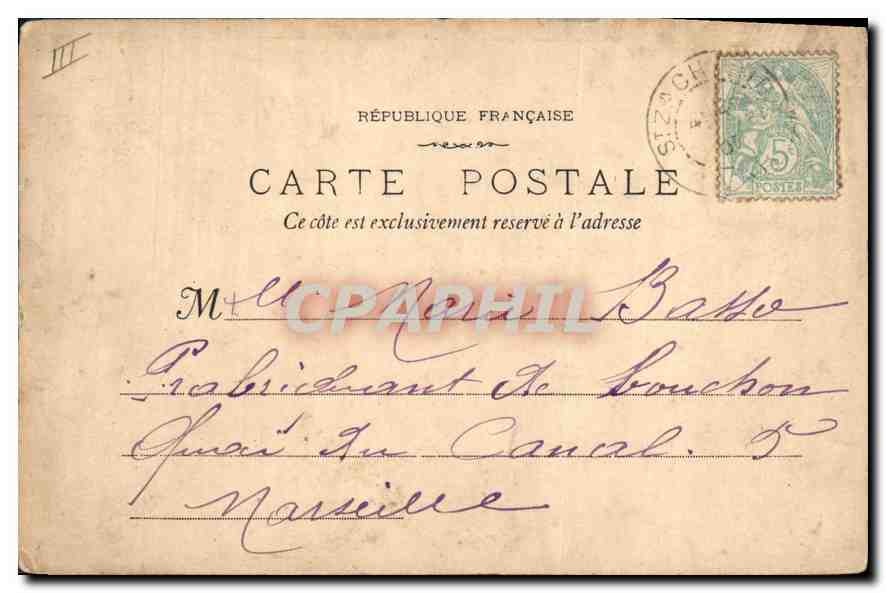 III
RÉPUBLIQUE FRANÇAISE
ST ZACH
5c
POSTES
CARTE POSTALE
Ce côte est exclusivement reservé à l'adresse
Mlle Marie Basso
CPAPHIL
Fabriduant de bouchon
Quai du Canal. 5
Marseille